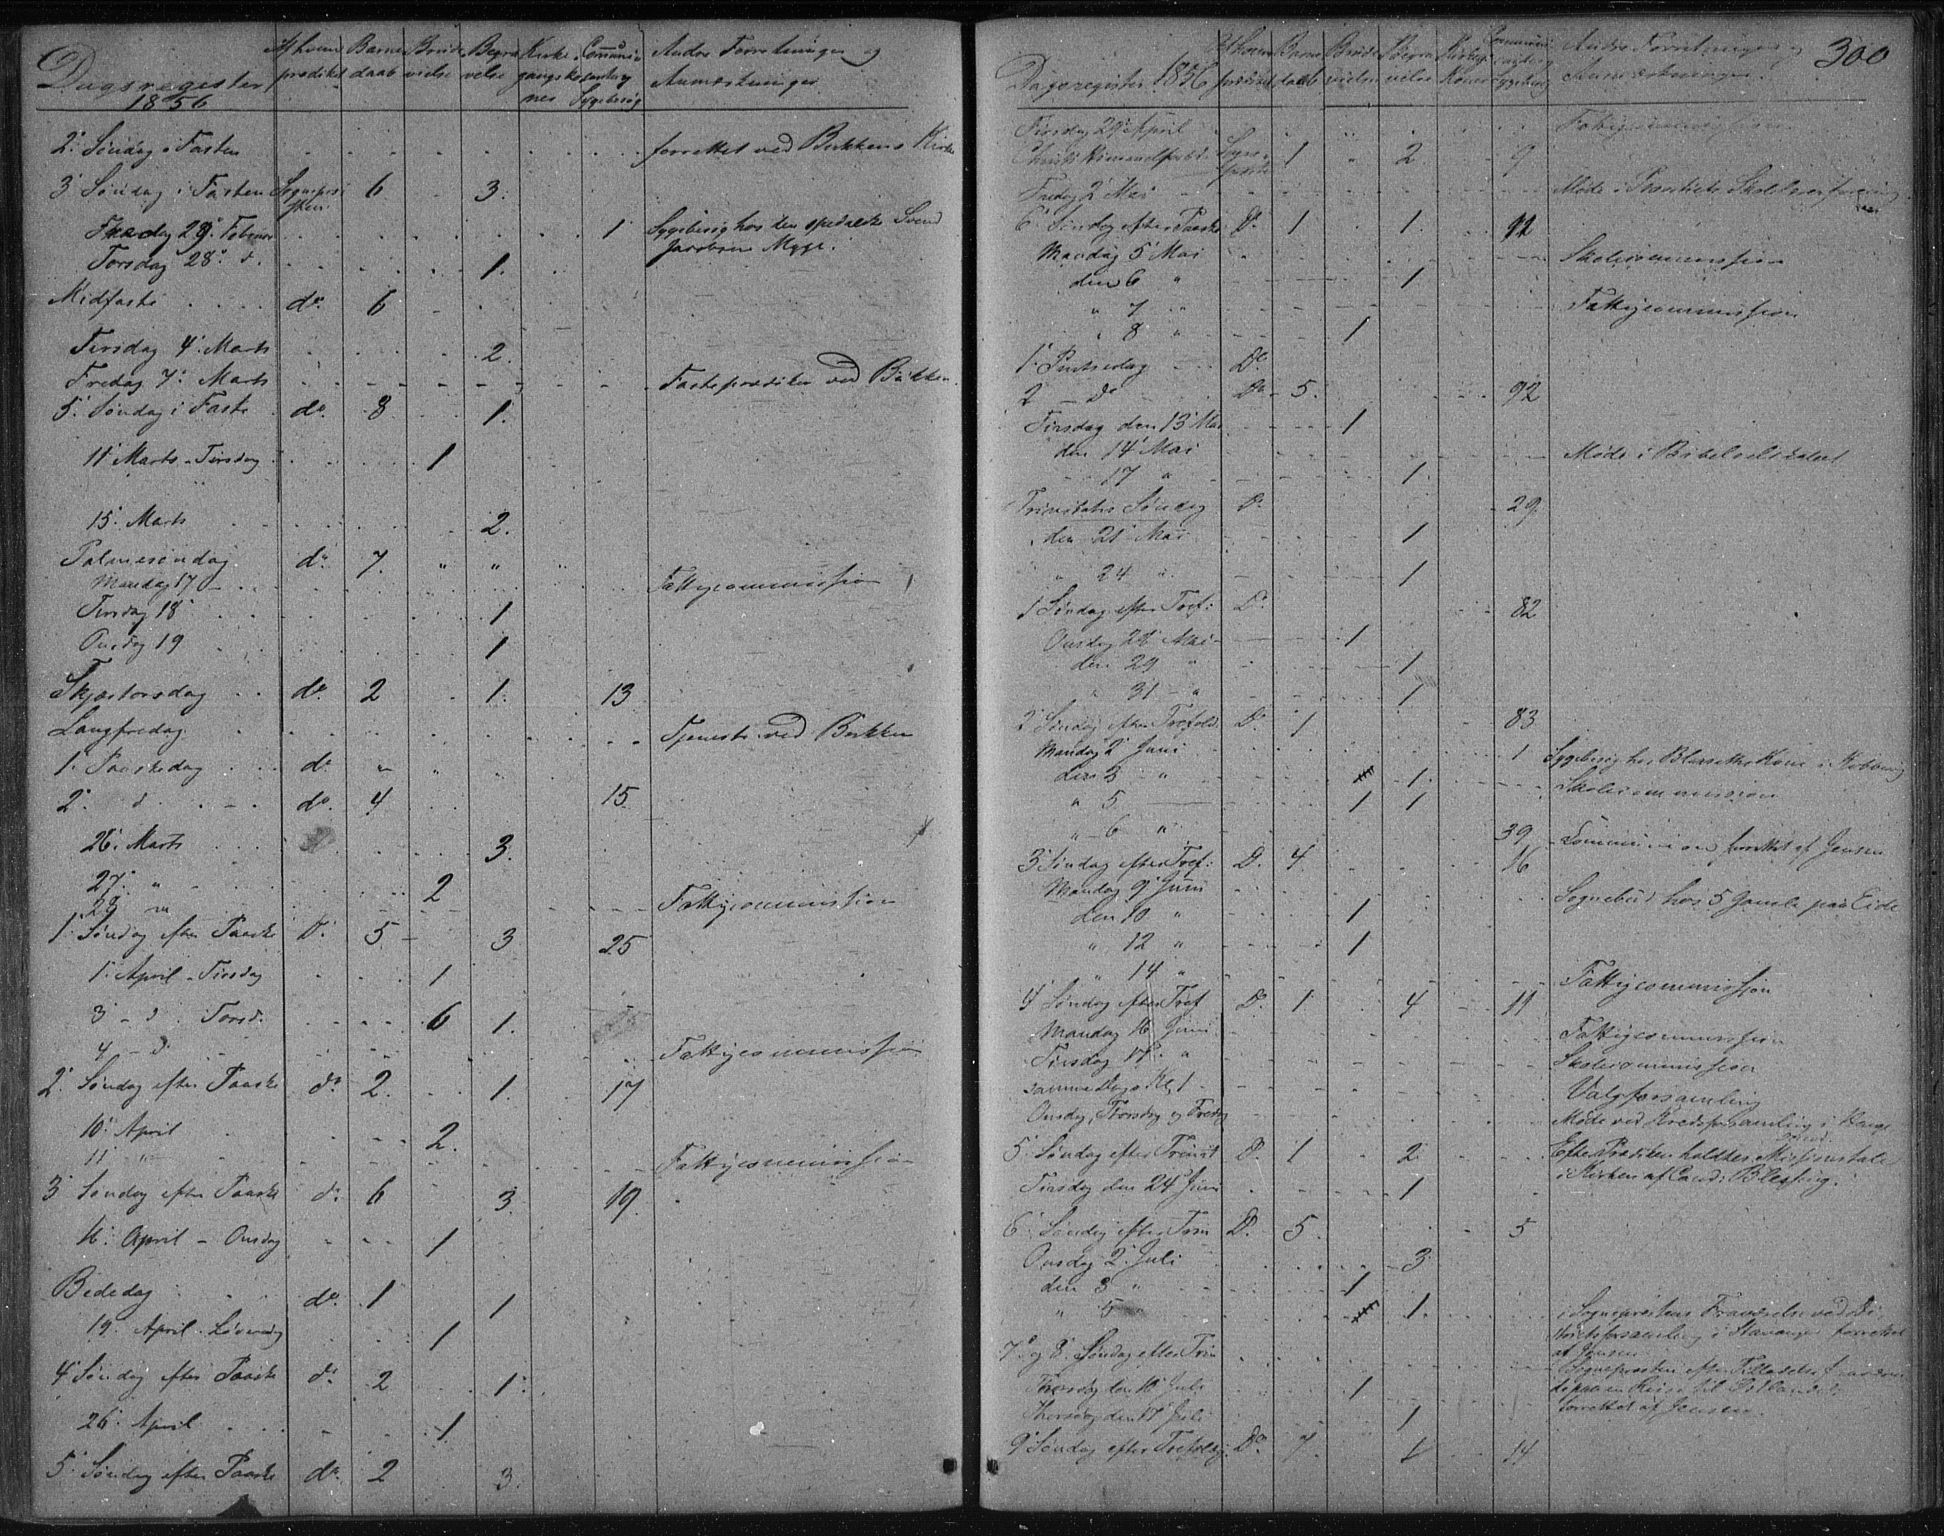 Dagsregister 1856 | Af hvem prædiket | Barnedaab | Brudevielse | Begravelse | Kirkegangskoner | Communicanter og Sygebesøg | Andre Forretninger og Anmærkninger
2' Søndag i Fasten forrettet ved Bakkens Kirke
3' Søndag i Fasten Sognepresten 6 3.
28' Februar 1 Sygebesøg hos den spedalske Svend
Jacobsen Myge.
Torsdag 28' d. 1.
Midfaste d° 6
Tirsdag 4' Marts 2.
Fredag 7' Marts Fasteprædiken ved Bakken.
5' Søndag i Faste d° 8 1.
11' Marts - Tirsdag 1
15' Marts 2.
Palmesøndag d° 7. " "
Mandag 17 Fattigcommission
Tirsdag 18' 1
Onsdag 19 1
Skjærtorsdag d° 2 1. 13
Langfredag Tjeneste ved Bakken
1' Paaskedag d° " " "
2' d° d° 4 15
26' Marts 3.
27' " 2
28 " Fattigcommission
1' Søndag efter Paaske D° 5 3 25
1' April - Tirsdag 1
3 - d° Torsd. 6 1.
4 - d° Fattigcommission
2' Søndag efter Paaske d° 2. 1. 17
10' April 2.
11' " Fattigcommission
3' Søndag efter Paaske d° 6 3. 19.
16' April - Onsdag 1
Bededag d° 1 1
19' April - Løverdag 1
4' Søndag efter Paaske d° 2 1.
26' April 1.
5' Søndag efter Paaske d° 2 3.
300
Dagsregister 1856 | Af hvem prædiket | Barnedaab | Brudevielse | Begravelse | Kirkeg. Koner | Communicanter og Sygebesøg | Andre Forretninger og Anmærkninger.
Tirsdag 29' April Fattigcommission
Christi Himmelfartsd. Sogneprest 1 " 2 9
Fredag 2' Mai Møde i
6' Søndag efter Paaske D° 1 1. 11
Mandag 5' Mai Skolecommission
den 6 " 1
" 7 " Fattigcommission
" 8 " 1
1' Pintsedag D°
2 - d° D° 5. 92
Tirsdag den 13' Mai 1
den 14' Mai Møde i Bibelselskabet
17 " 1.
Trinitatis Søndag D° 29
den 21' Mai 1
" 24 " 1
1' Søndag efter Tref: D° 82
Onsdag 28' Mai 1
den 29 " 1
" 31 - " 1
2' Søndag efter Trefold. D° 1 83
Mandag 2' Juni 1 Sygebesøg hos Kone i
den 3 " 1. Skolecommission
" 5 1 1
" 6 " 39 Communion forrettet af Jensen
3' Søndag efter Tref: D. 4. 16
Mandag 9' Juni Sognebud hos 5 Gamle paa Eide
den 10 " 1
" 12 " 1
" 14 " Fattigcommission
4' Søndag efter Tref D° 1 4 11
Mandag 16' Juni Fattigcommission
Tirsdag 17' " Skolecommission
samme Dags Kl. 1 Valgforsamling
Onsdag, Thorsdag og Fredag Møde ved Kredsforsamling i
5' Søndag efter Trinit D. 1 2 Efter Prædiken holdtes Missionstale
i Kirken af Cand: Blessing.
Tirsdag den 24' Juni 1
6' Søndag efter Trin D. 5. 5
Onsdag 2' Juli 3.
den 3 " 1
" 5 1. i Sogneprestens Fraværelse ved Di-
strictsforsamling i Stavanger forrettet
af Jensen
7' og 8' Søndag efter Trin Sognepresten efter Tilladelse fraværen-
de paa en Reise til Østlandet
forrettet af Jensen.
Thorsdag den 10' Juli 1
Thorsdag den 17' Juli 1
9' Søndag efter Trefoldig. D° 7. 1 14